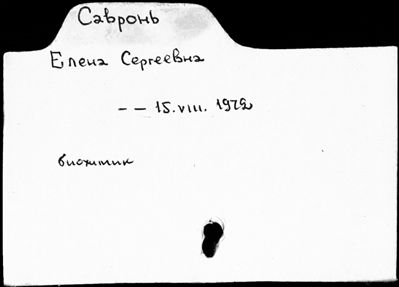 Савронь
Елена Сергеевна
— — 15.VIII. 1972
биохимик